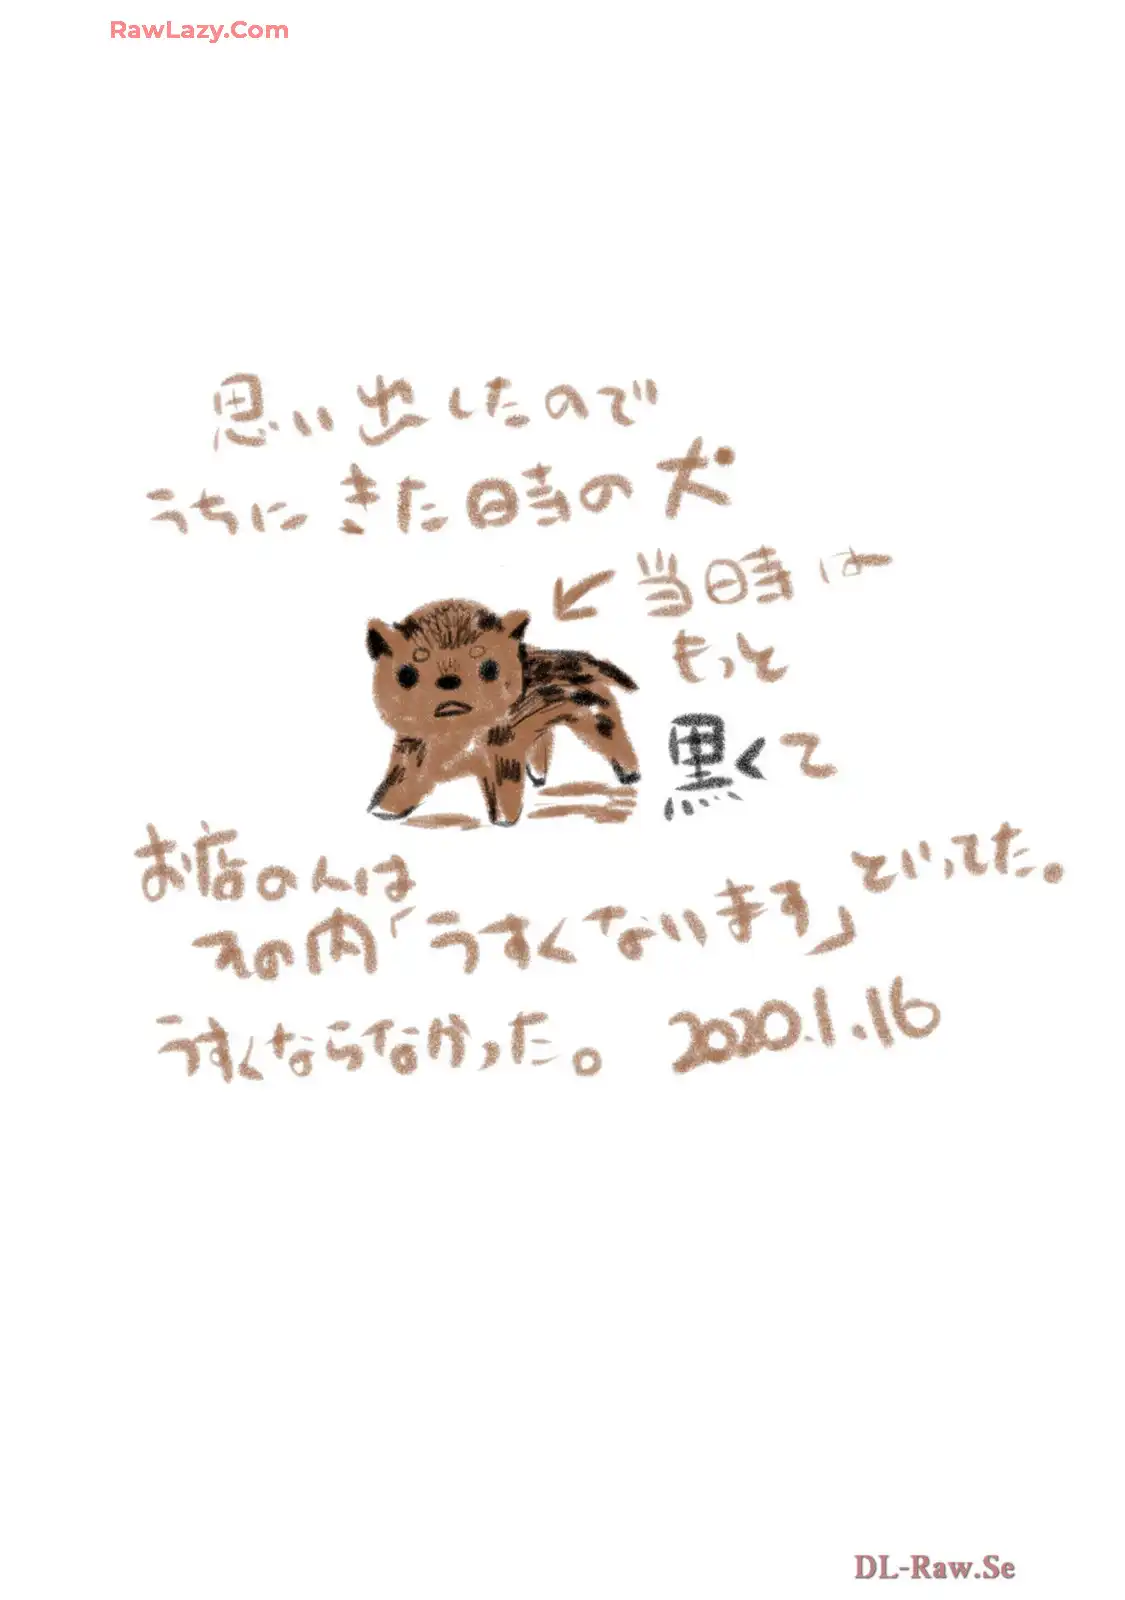 RawLazy.Com
思い出したので
うちにきた時の犬
←当時は
もっと
黒くて
お店の人は
その内「うすくなります」といってた。
うすくならなかった。 2020.1.16
DL-Raw.Se